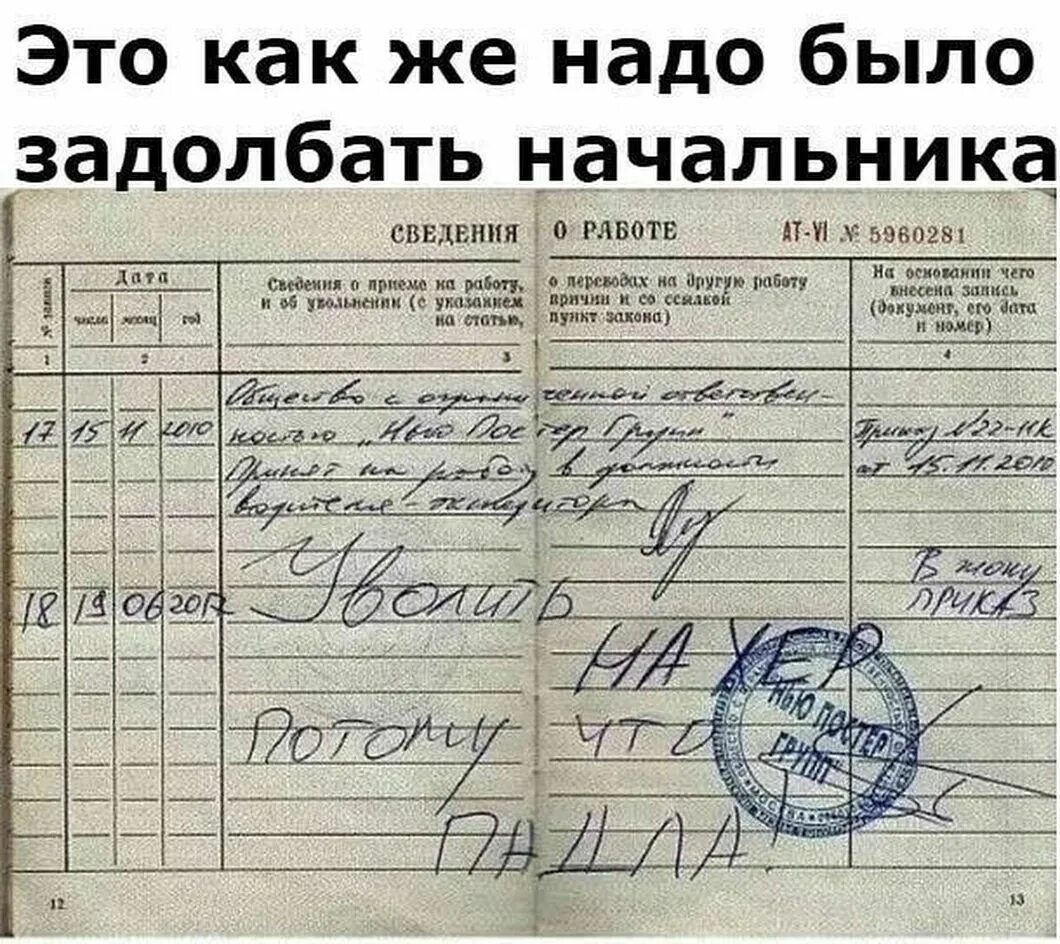 Это как же надо было
задолбать начальника
СВЕДЕНИЯ О РАБОТЕ AT-VI № 5960281
№ записи
Дата
число месяц год
Сведения о приеме на работу, о переводах на другую работу
и об увольнении (с указанием причин и со ссылкой
на статью, пункт закона)
На основании чего
внесена запись
(документ, его дата
и номер)
1 2 3 4
Общество с ограниченной ответствен-
17 15 11 2010 ностью „Нью Постер Групп" Приказ №22-НК
Принят на работу в должности от 15.11.2010
водителя-экспедитора
В жопу
18 19 06 2012 Уволить ПРИКАЗ
НА ХЕР
ПОТОМУ ЧТО
ПАДЛА.
НЬЮ ПОСТЕР
ГРУПП
МОСКВА
12 13